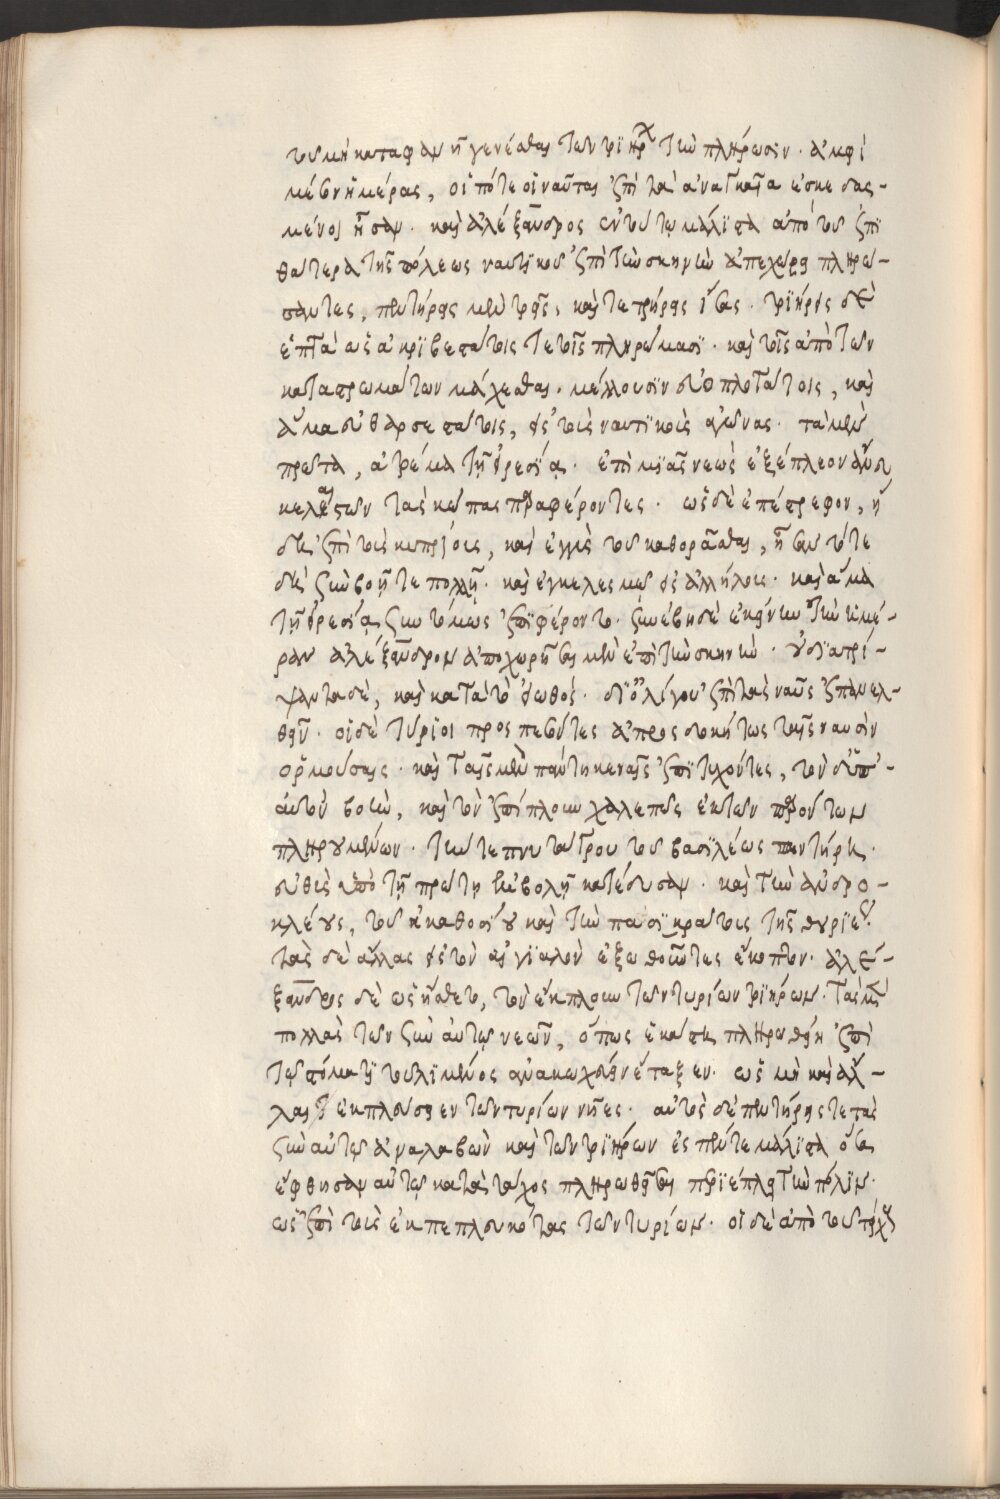 τοῦ μὴ καταφανῆ γενέσθαι τῶν τριήρων τὴν πλήρωσιν. ἀμφὶ
μέσον ἡμέρας, οἱπότε οἱ ναῦται ἐπὶ τὰ ἀναγκαῖα ἐσκεδας-
μένοι ἦσαν. καὶ ἀλέξανδρος ἐν τούτῳ μάλιστα ἀπὸ τοῦ ἐπὶ
θάτερα τῆς πόλεως ναυτικοῦ ἐπὶ τὴν σκηνὴν ἀπεχώρει πληρώ-
σαντες, πεντήρεις μὲν τρεῖς, καὶ τετρήρεις ἴσας. τριήρεις δὲ
ἑπτὰ ὡς ἀκριβεστάτοις τε τοῖς πληρώμασι. καὶ τοῖς ἀπὸ τῶν
καταστρωμάτων μάχεσθαι. μέλλουσιν εὐοπλοτάτοις, καὶ
ἅμα εὐθαρσεστάτοις, ἐς τοὺς ναυτικοὺς ἀγῶνας. τὰ μὲν
πρῶτα, ἀτρέμα τῇ εἰρεσίᾳ. ἐπὶ μιᾶς νεὼς ἐξέπλεον ἄνευ
κελευστῶν τὰς κώπας παραφέροντες. ὡς δὲ ἐπέστρεφον, ἤ
δη ἐπὶ τοὺς κυπρίους, καὶ ἐγγὺς τοῦ καθορᾶσθαι, ἦσαν τότε
δὴ ξὺν βοῇ τε πολλῇ. καὶ ἐγκελευσμῷ ἐς ἀλλήλους. καὶ ἅμα
τῇ εἰρεσίᾳ ξυντόνως ἐπιφέροντο. ξυνέβη δὲ ἐκείνην τὴν ἡμέ-
ραν ἀλέξανδρον ἀποχωρῆσαι μὲν ἐπὶ τὴν σκηνὴν. οὐ διατρί-
ψαντα δὲ, καὶ κατὰ τὸ εἰωθὸς. δι' ὀλίγου ἐπὶ τὰς ναῦς ἐπανελ-
θεῖν. οἱ δὲ τύριοι προσπεσόντες ἀπροσδοκήτως ταῖς ναυσὶν
ὁρμούσαις. καὶ ταῖς μὲν πάντη κεναῖς ἐπιτυχόντες, τῶν δ' ὑπ'-
αὐτὸν βοὴν, καὶ τὸν ἐπίπλουν χαλεπῶς ἐκ τῶν παρόντων
πληρουμένων. τήν τε πνυταγόρου τοῦ βασιλέως πεντήρη.
εὐθὺς ὑπὸ τῇ πρώτῃ ἐμβολῇ κατέδυσαν. καὶ τὴν ἀνδρο-
κλέους, τοῦ ἀμαθουσίου καὶ τὴν πασικράτους τῆς θυριέως.
τὰς δὲ ἄλλας ἐς τὸν αἰγιαλὸν ἐξωθοῦντες ἔκοπτον. ἀλέ-
ξανδρος δὲ ὡς ᾔσθετο, τὸν ἔκπλουν τῶν τυρίων τριήρων. τὰς μὲν
πολλὰς τῶν ξὺν αὐτῷ νεῶν, ὅπως ἑκάστη πληρωθείη ἐπὶ
τῷ στόματι τοῦ λιμένος ἀνακωχεύειν ἔταξεν. ὡς μὴ καὶ ἄλ-
λαι ἐκπλεύσειεν τῶν τυρίων νῆες. αὐτὸς δὲ πεντήρεις τε τὰς
ξὺν αὐτῷ ἀναλαβὼν καὶ τῶν τριήρων ἐς πέντε μάλιστα ὅσαι
ἔφθησαν αὐτῷ κατὰ τάχος πληρωθεῖσαι περιέπλει τὴν πόλιν.
ὡς ἐπὶ τοὺς ἐκπεπλευκότας τῶν τυρίων. οἱ δὲ ἀπὸ τοῦ τείχους